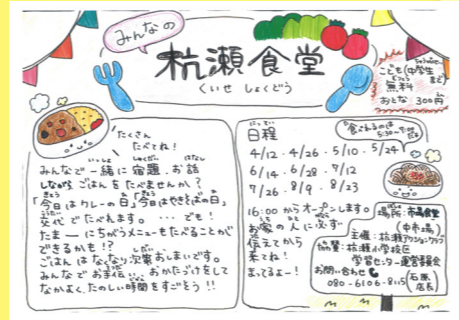 みんなの
杭瀬食堂
くいせ しょくどう
こども(中学生まで)
無料
おとな 300円
たくさん
たべてね!
みんなで一緒に宿題、お話
しながらごはんをたべませんか?
「今日はカレーの日」「今日はやきそばの日」
交代でたべれます。・・・でも!
たまーにちがうメニューもたべることが
できるかも!?
ごはんはなくなり次第おしまいです。
みんなでお手伝い、おかたづけをして
なかよく、たのしい時間をすごそう!!
日程
食べれるのは
5:30~7:00
4/12・4/26・5/10・5/24
6/14・6/28・7/12
7/26・8/9・8/23
16:00からオープンします。
お家の人に必ず
伝えてから
来てね!
まってるよー!
場所:市場食堂
(中市場)
主催:杭瀬アクションクラブ
協賛:杭瀬小学校区
学習センター運営委員会
お問い合わせ
080-6106-8115
(石原店長)